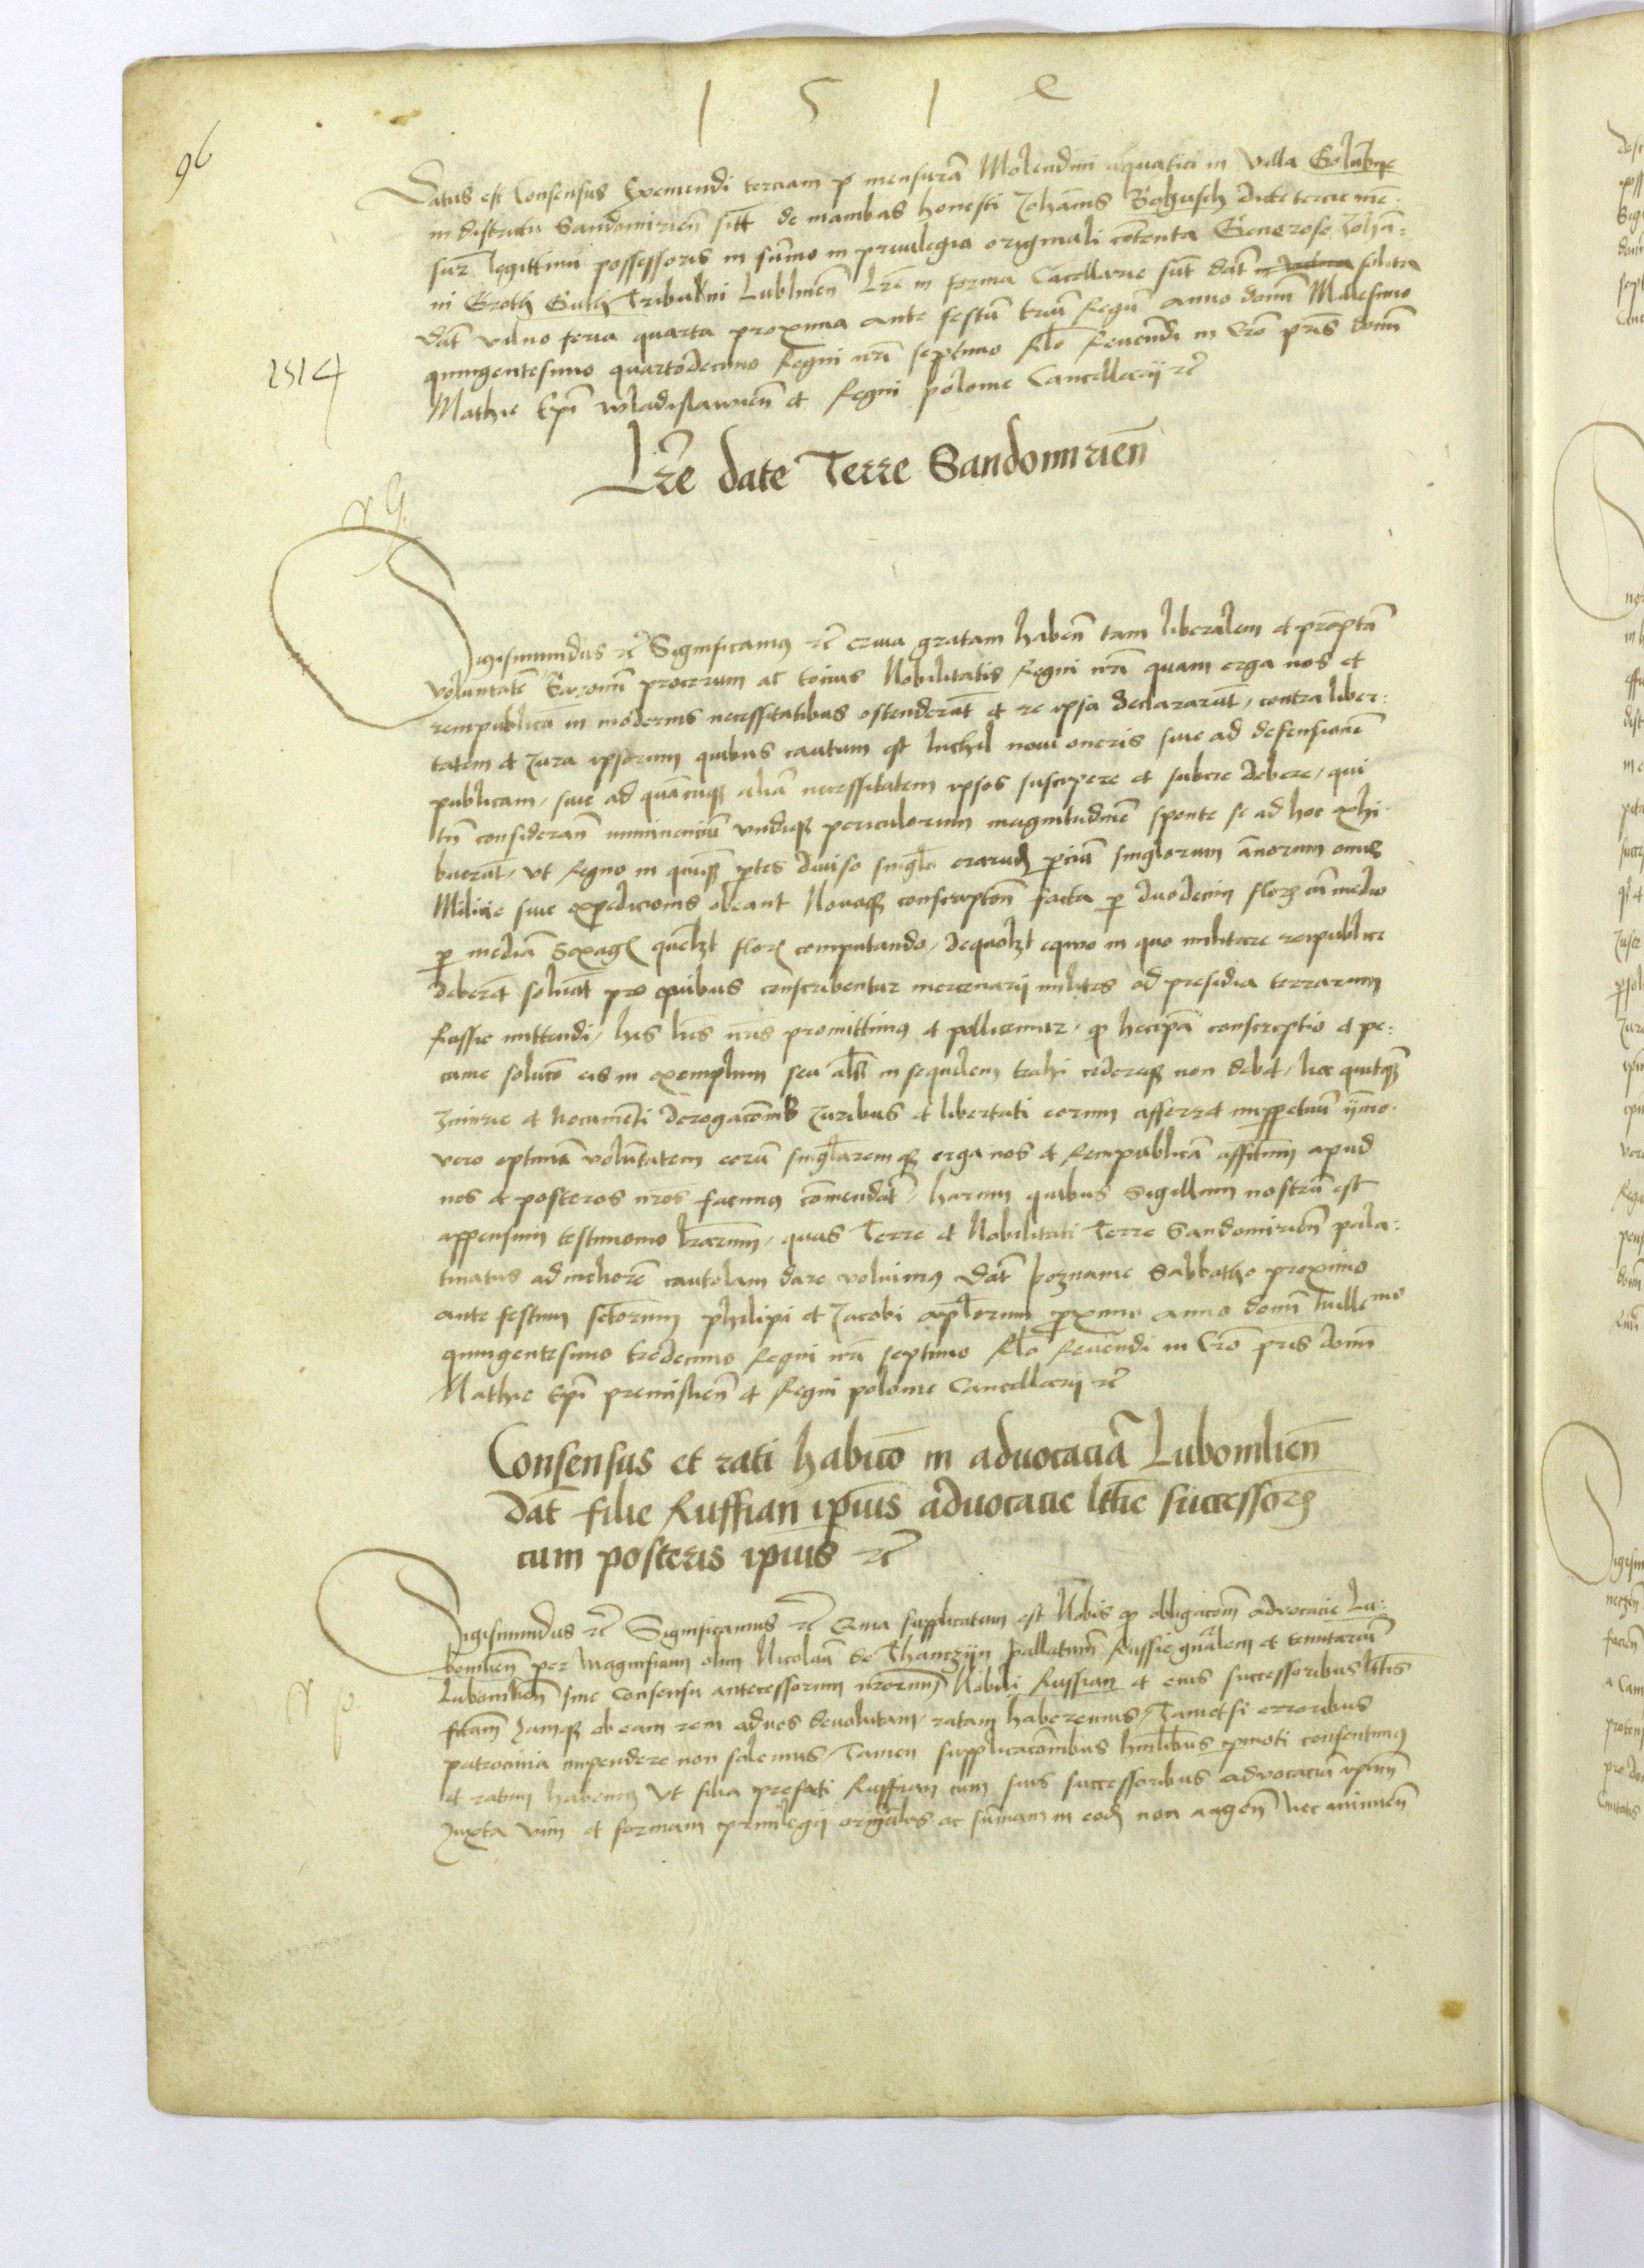 1 5 1 e
96
Datus est Consensus Exemendi terciam p mensurā Molendini aquatici in villa Golubye
in districtu Sandomirien̄ sitt de manibas honesti Johānis Bogusch dicte tercie mē:
sur̄ legittimi possessoris in sum̄a in priuilegio originali cōtenta Generoso Johā:
ni Groth Guth Tribuno Lublinen̄ Lr̄e in forma Cācellarie sūt dat̄ solita
Dat̄ vilno feria quarta proxima ante festū triū Regū anno domī Milesimo
1514
quingentesimo quartodecimo Regni nr̄i septimo Rl̄o Reuen̄di in Cr̄o pr̄is domī
Mathie Ep̄i wladislawien̄ et Regni polonie Cancellarij rc̄
Lr̄e date Terre Sandomirien̄
Sigismundus rc̄ Significamus rc̄ Quia gratam haben̄ tam liberalem et promptā
voluntatē Baronū procerum ac tocius Nobilitatis Regni nr̄i quam erga nos et
rempublicā in modernis necessitatibus ostenderūt et re ipsa declararūt, contra liber:
tatem et Jura ipsorum quibus cautum est Nichil noui oneris siue ad defensionē
publicam, siue ad quācūq aliā necessitatem ipsos suscipere et subire debere, qui
tn̄ consideran̄ imminenciū vndiq periculorum magnitudinē sponte se ad hoc exhi:
buerūt, vt Regno in quinq ptes diuiso singl̄a earundē pciū singlorum ān̄orum onus
Milicie siue expedicionis obeant Nouaq conscriptoñ facta p duodecim flor cū medio
p mediā Sexag quelꝫt flor computando, dequolꝫt equo in quo militare reipublice
deberēt soluāt pro quibus conscribentur mercenarij milites ad presidia terrarum
Russie mittendi, his lr̄is nr̄is promittimus et pollicemur, qo hec ipā conscriptio et pe:
cunie soluco eis in exemplum seu alr̄ in sequelem trahi cedereq non debet, nec quicq
Iniurie et Nocumēti derogacōnisq Juribus et libertati eorum afferret imppetuū ymmo
vero optimā volūntatem eorū singl̄aremq erga nos et Rempublicā affectum apud
nos et posteros nr̄os facimus cōmendatā, harum quibus Sigillum nostrū est
appensum testimonio lr̄arum, quas Terre et Nobilitati Terre Sandomirien̄ pala:
tinatus ad meliorē cautelam dare voluimus Dat̄ poznanie Sabbatho proximo
ante festum sctorum philipi et Jacobi apl̄orum proximo anno domī Millemo
quingentesimo tredecimo Regni nr̄i septimo Rl̄o Reuen̄di in Cr̄o pr̄is domī
Mathie Ep̄i premislien̄ et Regni polonie Cancellarij rc̄
Consensus et rati habico in aduocaciā Lubomlien̄
Dat̄ filie Russian ipius aduocacie ltt̄ie successor
cum posteris ipius rc̄
Sigismundus rc̄ Significamus rc̄ Quia supplicatum est Nobis qo obligacom̄ aduocacie Lu:
bomlien̄ per Magnificum olim Nicolaū de Thanczijn pallatinū Russie gnr̄alem et tenutariū
Lubomlien̄ sine Consensu antecessorum nr̄orum, Nobili Russian et eius successoribus ltt̄is
fc̄tam Jamq ob eam rem ad nos deuolutam, ratam haberemus, Tametsi erroribus
patrocinia impendere non solemus, Tamen supplicacōnibus hmlibus pmoti consentimus
et ratum habemus Vt filia prefati Russian cum suis successoribus aduocaciā ipam
Juxta vim et formam priuilegij orign̄alis ac sum̄am in eodē non augen̄ nec minuen̄